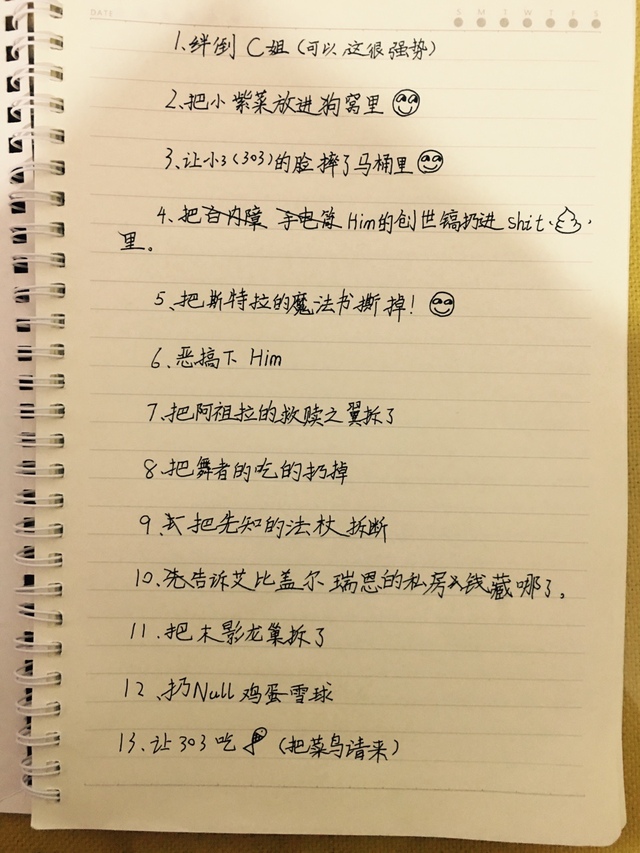 DATE
S M T W T F S
1、绊倒 C姐 (可以 这很强势)
2、把小 紫菜放进狗窝里
3、让小3(303)的脸摔了马桶里
4、把 Him的创世镐扔进 shit
里。
5、把斯特拉的魔法书撕掉!
6、恶搞下 Him
7、把阿祖拉的救赎之翼拆了
8、把舞者的吃的扔掉
9、把先知的法杖 拆断
10、告诉艾比盖尔 瑞恩的私房钱藏哪了。
11、把末影龙巢拆了
12、扔Null 鸡蛋雪球
13、让303吃 (把菜鸟请来)